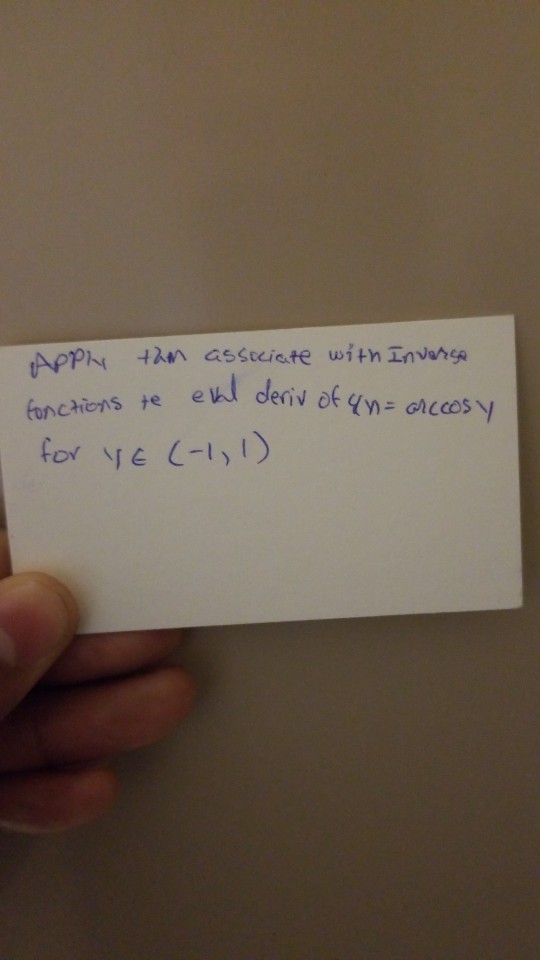 Apply thm associate with Inverse
fonctions te eval deriv of = arccosy
for y ∈ (-1, 1)